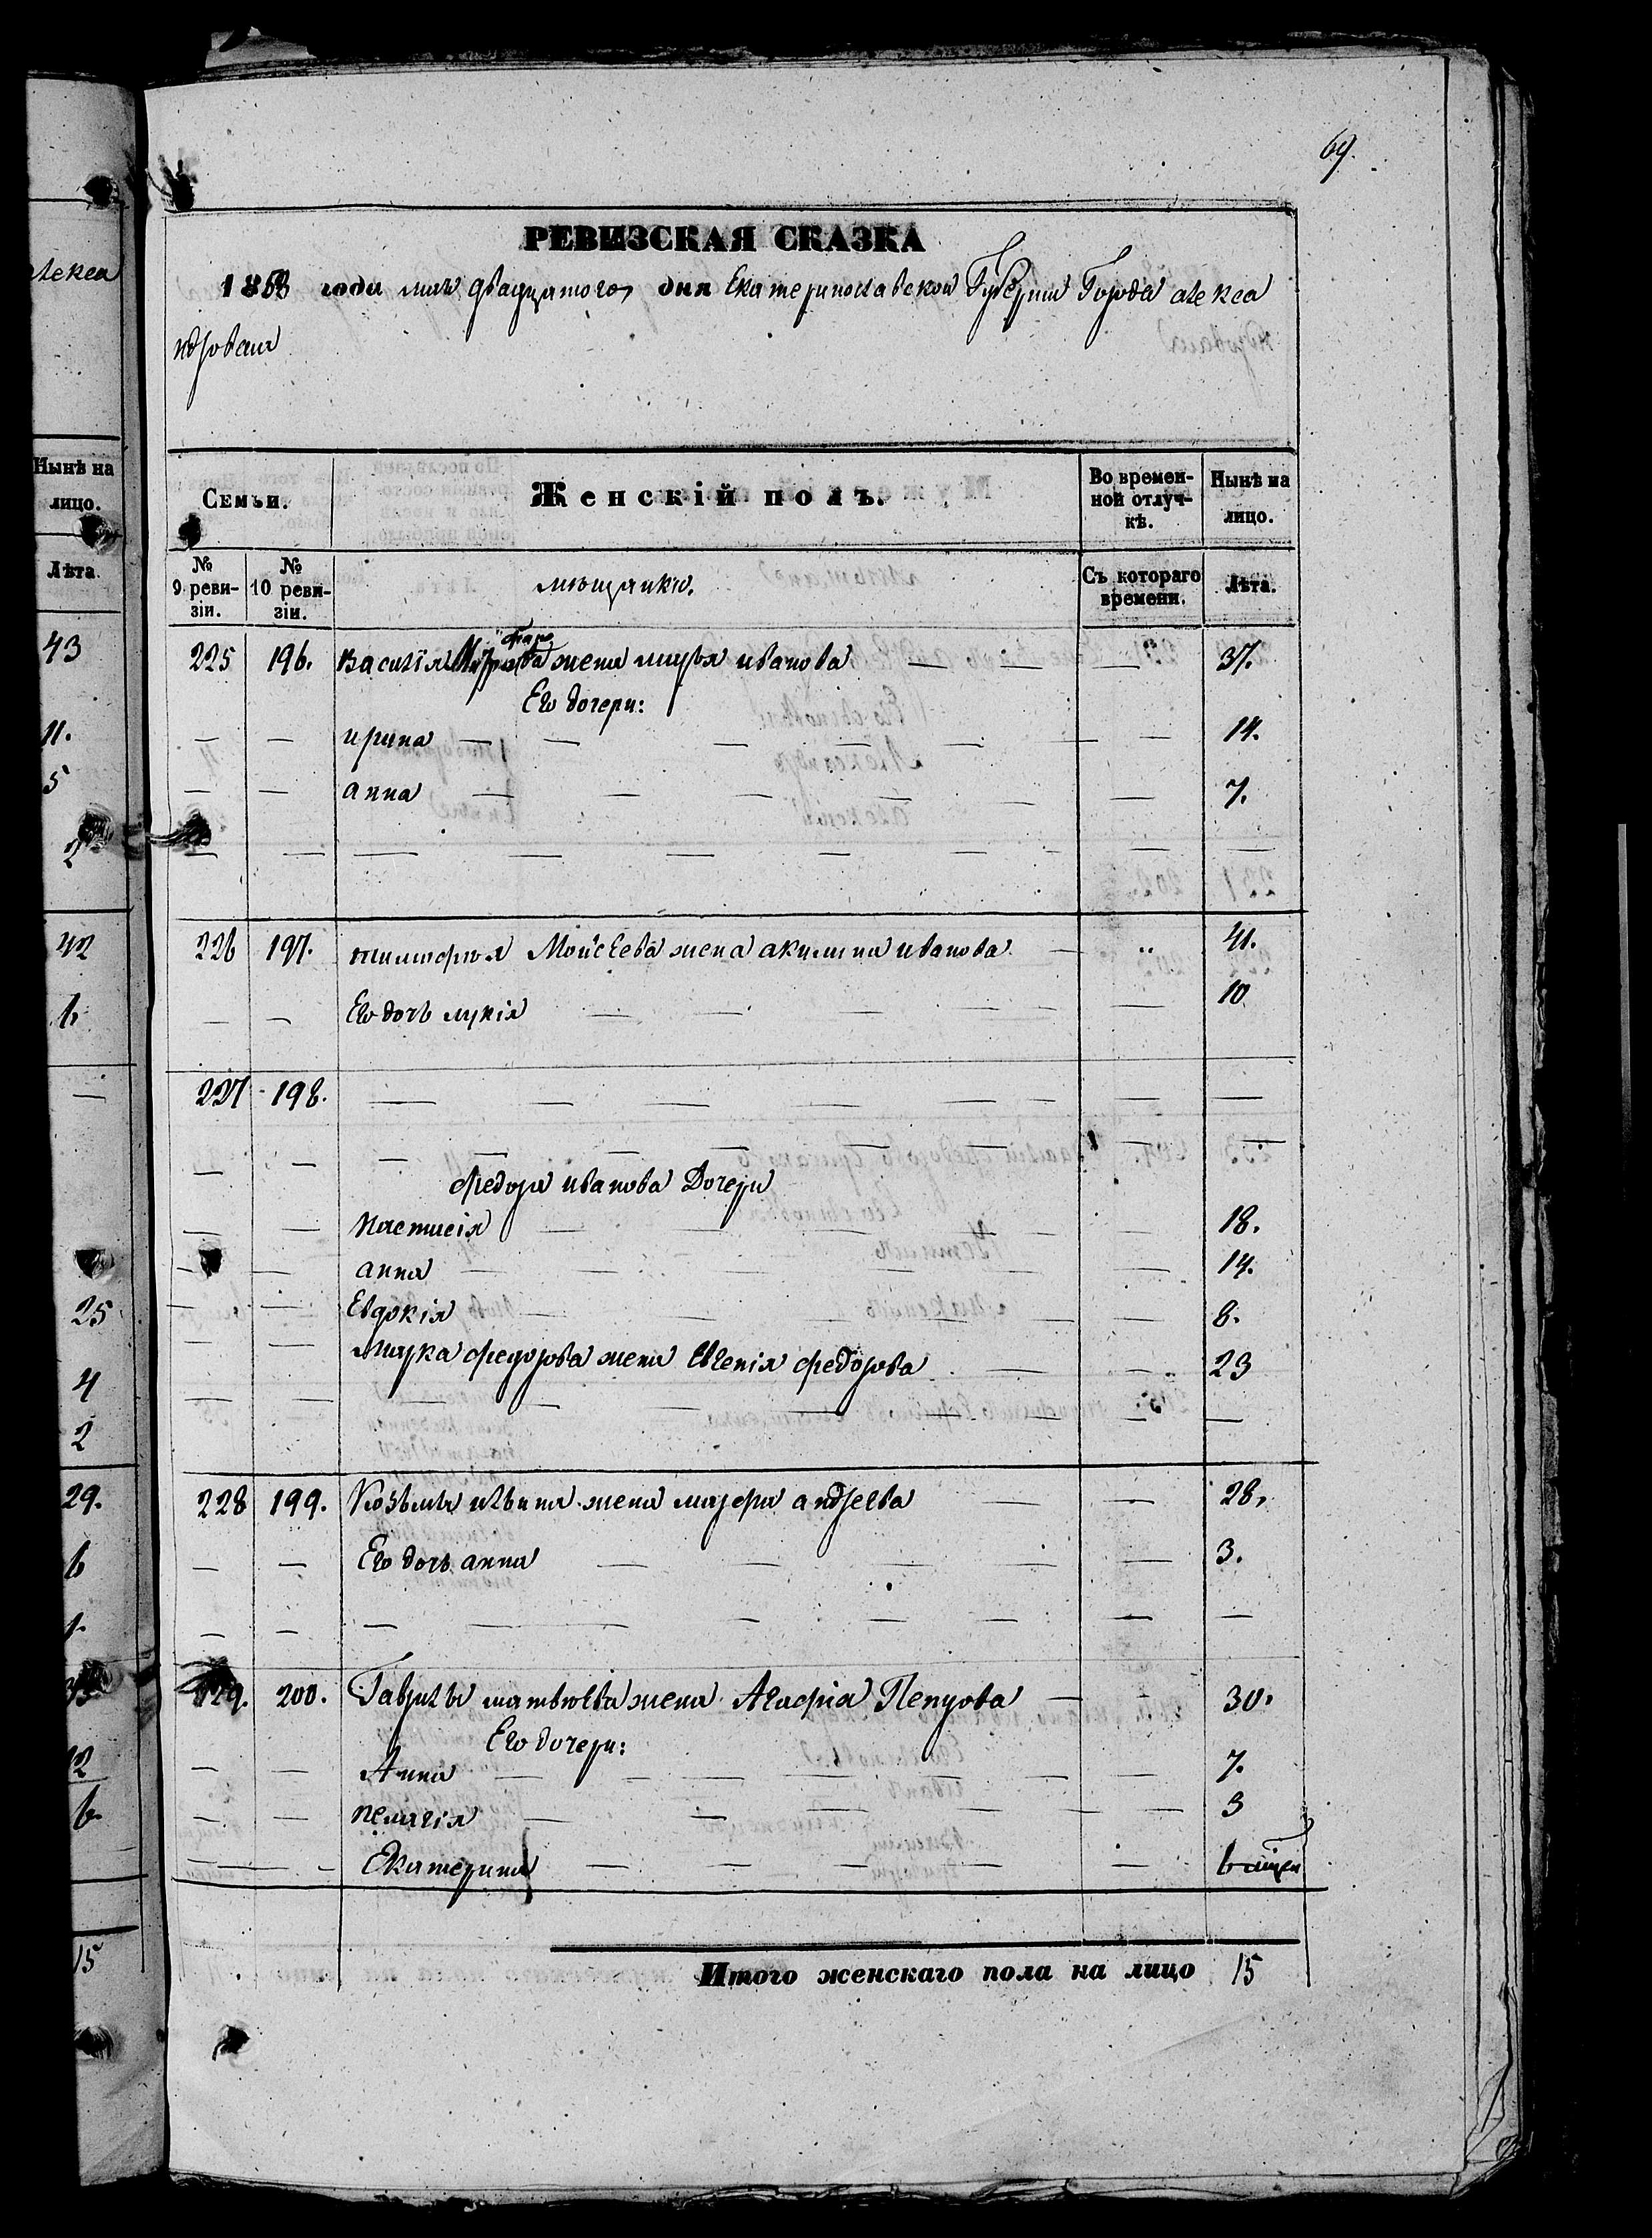 69.
РЕВИЗСКАЯ СКАЗКА
1858 года мая двадцатого дня Екатеринославской Губернии Города алекса
ндровска
алекса
Семьи.
Женскій полъ.
Во времен-
ной отлуч-
кѣ.
Нынѣ на
лицо.
№
9 реви-
зіи.
№
10 реви-
зіи.
мѣщанки.
Съ котораго
времени.
Лѣта.
Нынѣ на
лицо.
Лѣта
225 196. василія жена марья иванова — — — 37.
Его дочери:
— — ирина — — — — — — — 14.
— — анна — — — — — — 7.
226 197. тимофея Моисеева жена акилина иванова — " 41.
— — Его дочь лукія — — — — — 10
227 198. — — — — — — — —
федора иванова Дочери
— — настасія — — — — — 18.
— — анна — — — — — — 14.
— — Евдокія — — — — — — 8.
— — Марка федорова жена Евгенія федорова — — 23
228 199. Козьмы ильина жена марфа андреева — — 28.
— — Его дочь анна — — — — — 3.
229. 200. Гаврилы матвѣева жена Агафія Петрова — — 30.
Его дочери:
— — Анна — — — — — — 7.
— — пелагія — — — — — 3
— — Екатерина — — — — — —
Итого женскаго пола на лицо 15
43
11.
5
2
42
6
25
4
2
29.
6
1.
12
6.
15